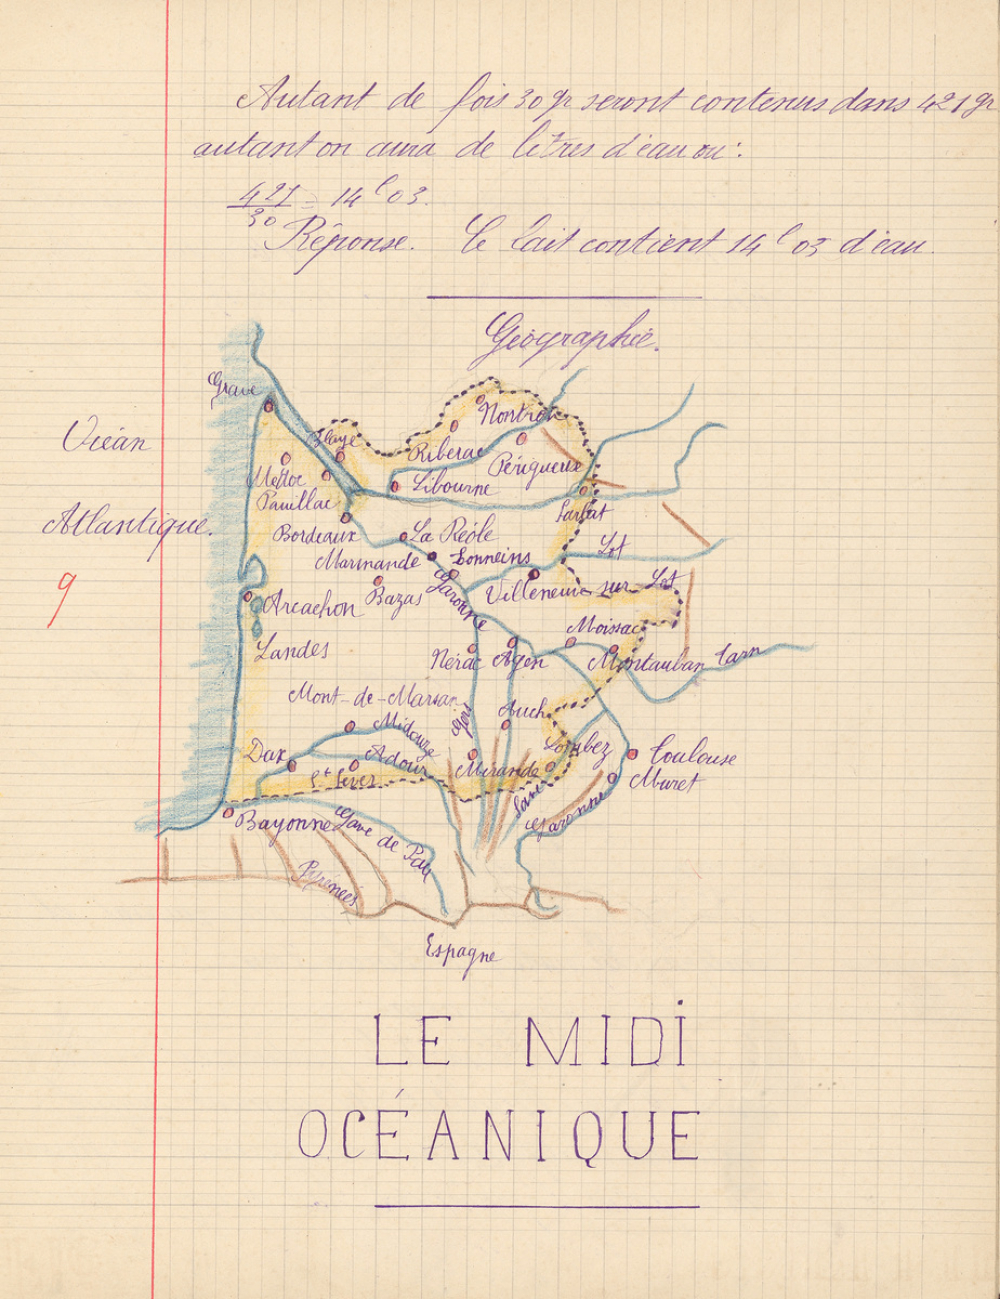 Autant de fois 30 gr seront contenus dans 421 gr
autant on aura de litres d'eau ou:
421/30 = 14 l 03.
Réponse. Le lait contient 14 l 03 d'eau.
Géographie.
Grave
Nontron
Océan
Blaye
Riberac
Périgueux
Medoc
Libourne
Pauillac
Sarlat
Atlantique.
Bordeaux
La Réole
Marmande
Tonneins
Lot
9
Garonne
Villeneuve sur Lot
Arcachon
Bazas
Moissac
Landes
Nérac
Agen
Montauban
Tarn
Mont-de-Marsan
Gers
Auch
Midouze
Dax
Adour
Lombez
Toulouse
St Sever
Mirande
Muret
Save
Garonne
Bayonne
Gave de Pau
Pyrénées
Espagne
LE MIDI
OCÉANIQUE